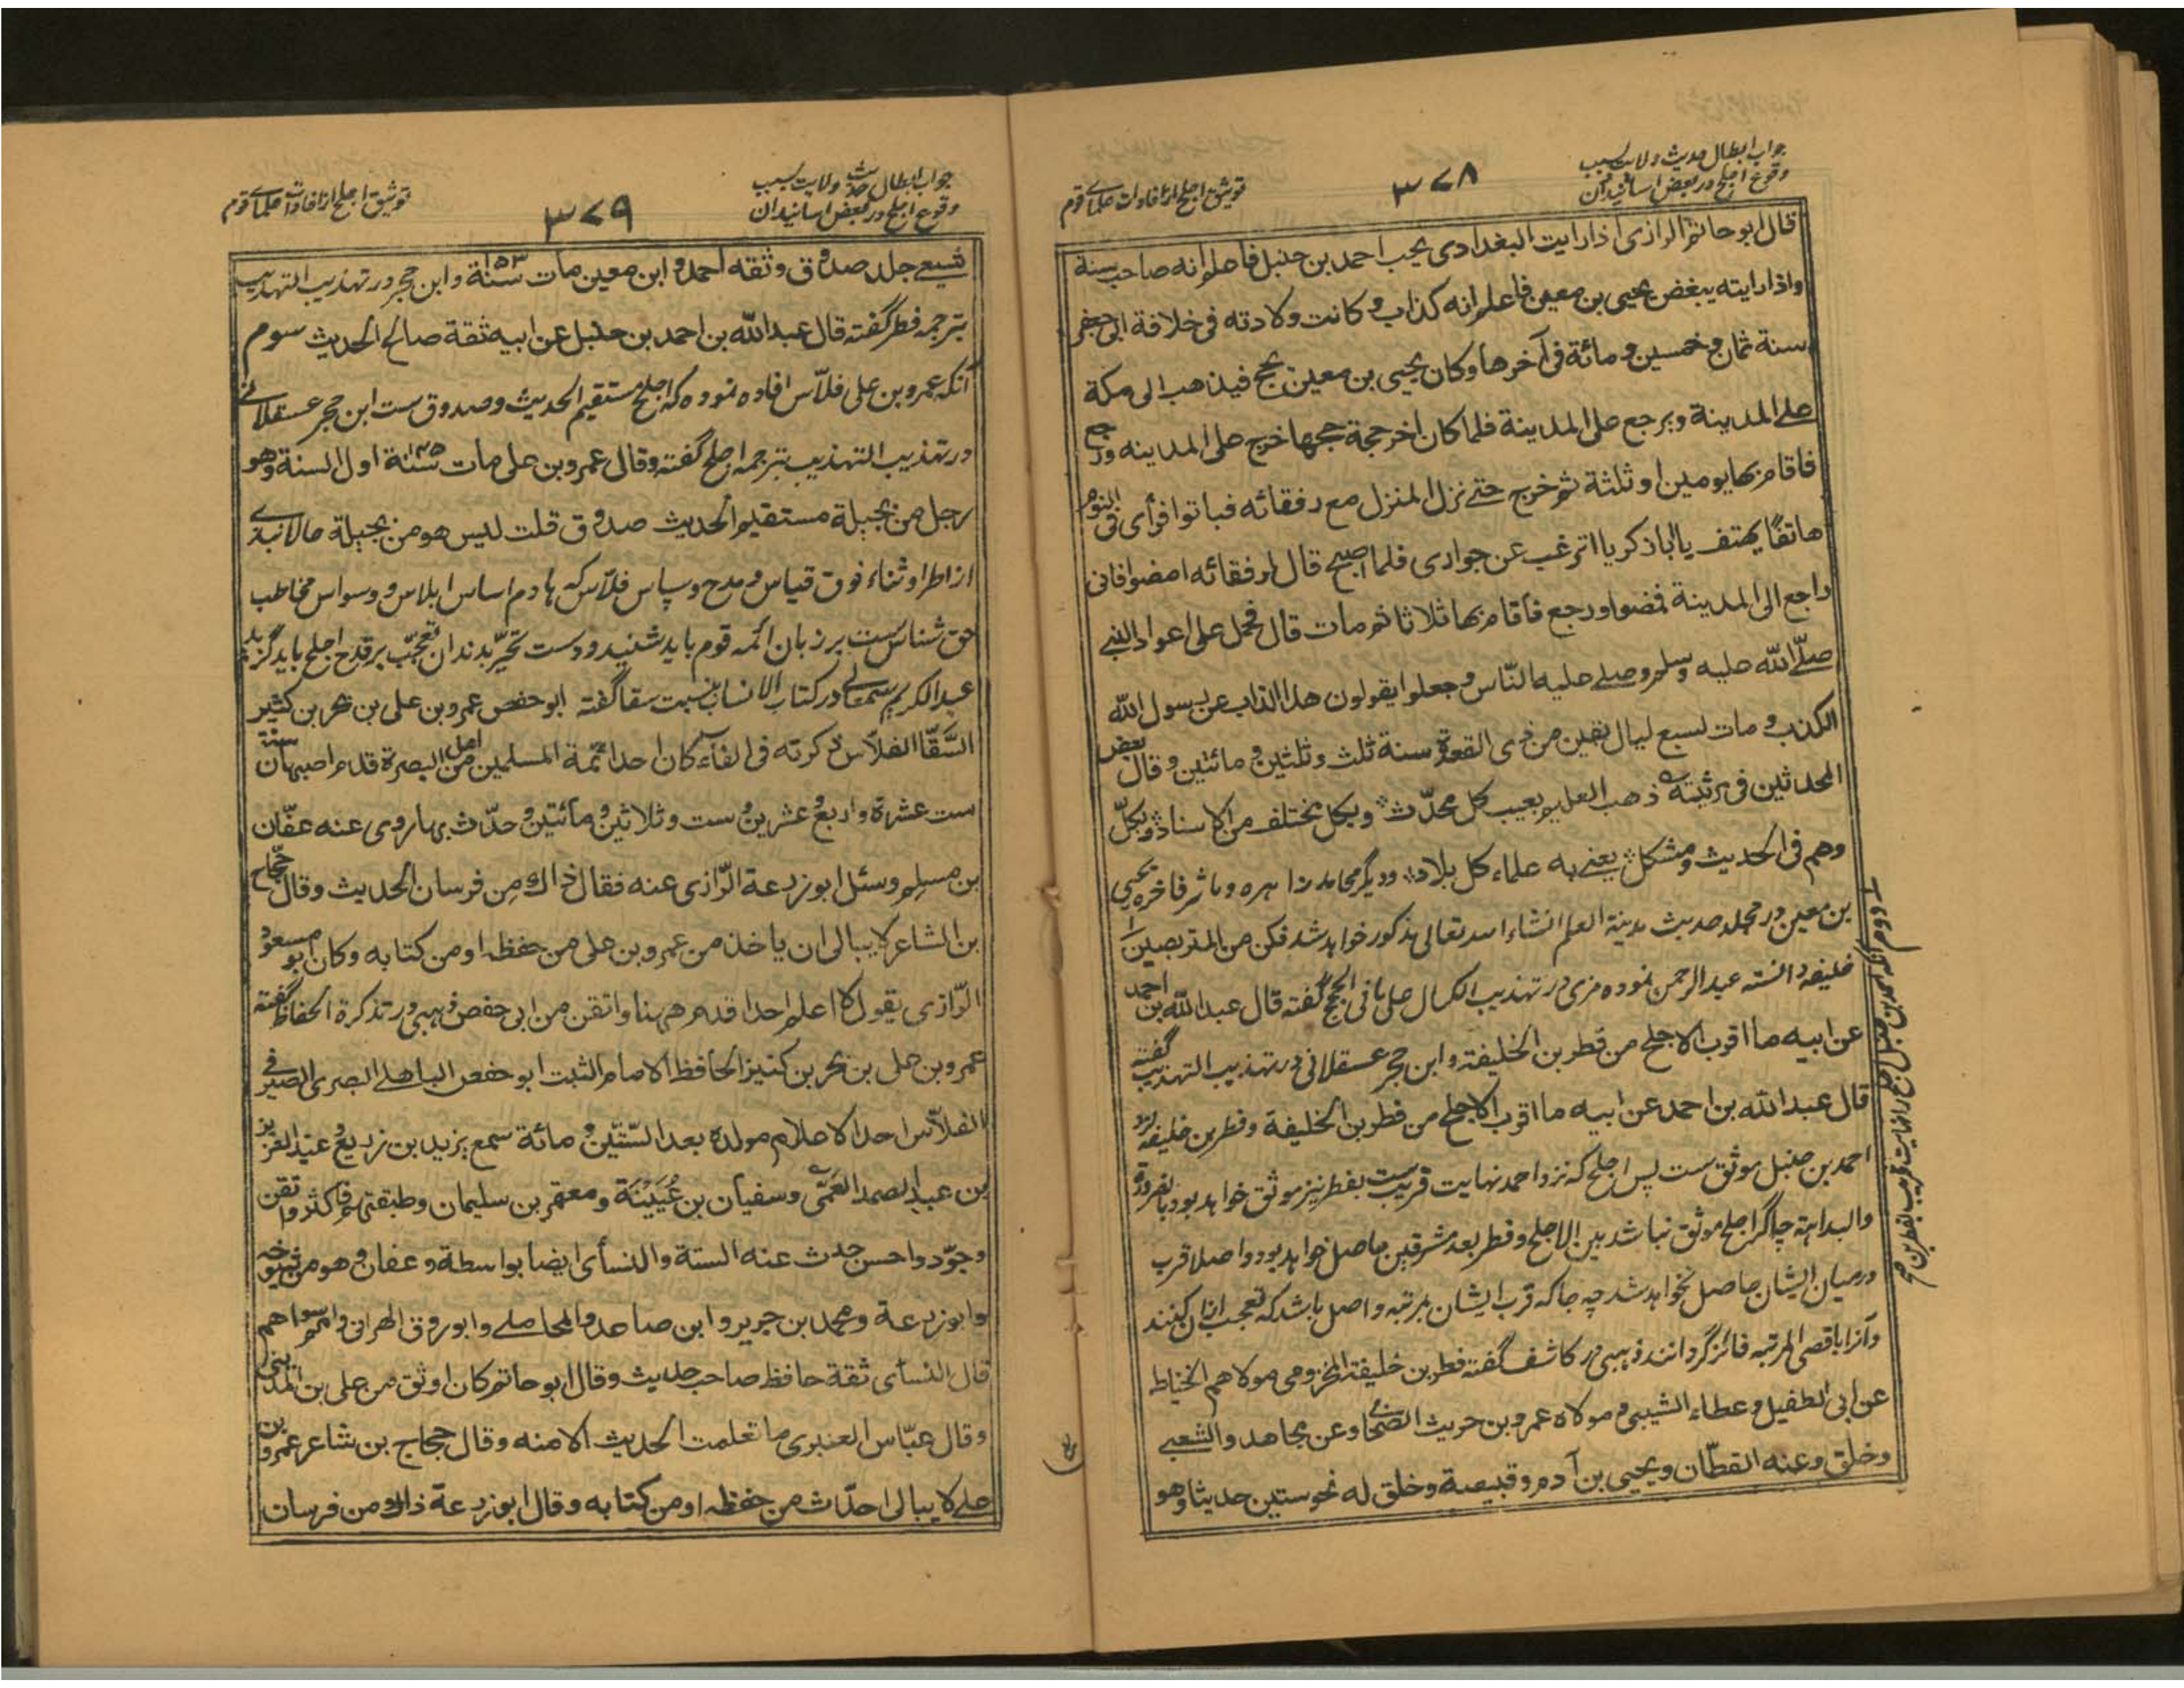 جواب ابطال حدیث ولایت بسبب
وقوع اجلح در بعض اسانیدان
۳۷۸
توثیق اجلح از افادات علمای قوم
قال ابو حاتم الرازی اذا رایت البغدادی یحب احمد بن حنبل فاعلم انه صاحب سنة
واذا رایته یبغض یحیی بن معین فاعلم انه کذاب و کانت ولادته فی خلافة ابی جعفر
سنة ثمان و خمسین و مائة فی آخرها وکان یحیی بن معین یحج فیذهب الی مکة
علی المدینة ویرجع علی المدینة فلما کان اخر حجة حجها خرج علی المدینه ورجع
فاقام بها یومین او ثلثة ثم خرج حتی نزل المنزل مع رفقائه فباتوا فرأی فی النوم
هاتفًا یهتف یا ابا زکریا اترغب عن جواری فلما اصبح قال لرفقائه امضوا فانی
راجع الی المدینة فمضوا ورجع فاقام بها ثلاثا ثم مات قال فحمل علی اعواد النبی
صلّی الله علیه وسلم وصلی علیه النّاس و جعلوا یقولون هذا الذاب عن رسول الله
الکذب و مات لسبع لیال بقین من ذی القعدة سنة ثلث وثلثین و مائتین وقال بعض
المحدثین فی مرثیته ذهب العلیم بعیب کل محدّث وبکل مختلف من الاسناد وبکلّ
وهم فی الحدیث ومشکل یعنی به علماء کل بلاد ودیگر محامد زاهره و مآثر فاخره یحیی
بن معین در مجلد حدیث مدینة العلم انشاء الله تعالی مذکور خواهد شد فکن من المتربصین
دوم آنکه احمد بن حنبل اجلح را نهایت قریب لفطر بن
خلیفه دانسته عبدالرحمن نموده مزی در تهذیب الکمال علی ما فی الحجج گفته قال عبد الله بن احمد
عن ابیه ما اقرب الاجلح من فطر بن الخلیفة و ابن حجر عسقلانی در تهذیب التهذیب گفته
قال عبد الله بن احمد عن ابیه ما اقرب الاجلح من فطر بن الخلیفة وفطر بن خلیفه نزد
احمد بن حنبل موثق ست پس اجلح که نزد احمد نهایت قریب ست بفطر نیز موثق خواهد بود بالضرورة
والبداهة چه اگر اجلح موثق نباشد بین الاجلح و فطر بعد مشرقین حاصل خواهد بود و اصلا قرب
درمیان ایشان حاصل نخواهد شد چه جا که قرب ایشان بمرتبه و اصل باشد که تعجب ازان کنند
و آنرا باقصی المرتبه فائز گردانند ذهبی در کاشف گفته فطر بن خلیفة المخزومی مولاهم الخیاط
عن ابی الطفیل و عطاء الشیبی و مولاه عمرو بن حریث الصحابی وعن مجاهد والشعبی
وخلق وعنه القطّان ویحیی بن آدم و قبیصة وخلق له نحو ستین حدیثا وهو
جواب ابطال حدیث ولایت بسبب
وقوع اجلح در بعض اسانیدان
۳۷۹
توثیق اجلح از افادات علمای قوم
شیعی جلد صدوق وثقه احمد و ابن معین مات سنة ۱۵۳ و ابن حجر در تهذیب التهذیب
بترجمه فطر گفته قال عبد الله بن احمد بن حنبل عن ابیه ثقة صالح الحدیث سوم
آنکه عمرو بن علی فلّاس افاده نموده که اجلح مستقیم الحدیث و صدوق ست ابن حجر عسقلانی
در تهذیب التهذیب بترجمه اجلح گفته وقال عمرو بن علی مات سنة ۱۴۵ اول السنة وهو
رجل من بجیلة مستقیم الحدیث صدوق قلت لیس هو من بجیلة حالا نبذی
از اطرا و ثناء فوق قیاس و مدح و سپاس فلّاس که هادم اساس ابلاس و وسواس مخاطب
حق شناس ست بر زبان ائمه قوم باید شنید و دست تحیّر بدندان تعجّب بر قدح اجلح باید گزید
عبد الکریم سمعانی در کتاب الانساب بنسبت سقا گفته ابو حفص عمرو بن علی بن بحر بن کثیر
السَّقّا الفلاّس ذکرته فی الفاء کان احد ائمة المسلمین من اهل البصرة قدم اصبهان سنة
ست عشرة و اربع عشرین و ست وثلاثین و مائتین و حدّث بها روی عنه عفّان
بن مسلم وسئل ابو زرعة الرّازی عنه فقال ذاك من فرسان الحدیث وقال حجّاج
بن الشاعر لا یبالی ان یاخذ من عمرو بن علی من حفظه او من کتابه وکان ابو مسعود
الرّازی یقول لا اعلم احدا قدم ههنا واتقن من ابی حفص ذهبی در تذکرة الحفاظ گفته
عمرو بن علی بن بحر بن کنیز الحافظ الامام الثبت ابو حفص الباهلی البصری الصیرفی
الفلاّس احد الاعلام مولده بعد السّتّین و مائة سمع یزید بن زریع و عبد العزیز
بن عبد الصمد العَمّی وسفیان بن عُیَیْنَة ومعتمر بن سلیمان وطبقتهم فاکثر واتقن
وجوّد واحسن حدث عنه الستة والنسائ ایضا بواسطة و عفان و هو من شیوخه
وابو زرعة ومحمد بن جریر و ابن صاعد و المحاملی وابو روق الهزانی و امم سواهم
قال النسائ ثقة حافظ صاحب حدیث وقال ابو حاتم کان اوثق من علی بن المدینی
وقال عبّاس العنبری ما تعلمت الحدیث الا منه وقال حجاج بن شاعر عمرو بن
علی لا یبالی احدّث من حفظه او من کتابه وقال ابو زرعة ذاك من فرسان